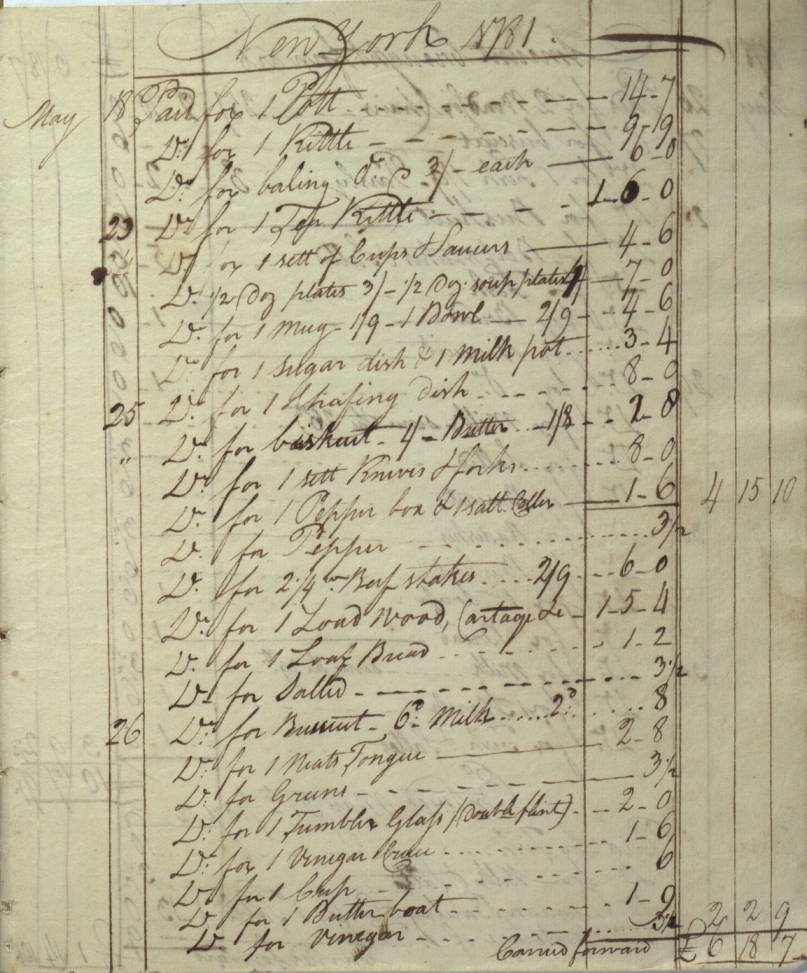 New York 1781.
May 18 Paid for 1 Pott 14-7
Do. for 1 Kittle 9-9
Do. for baling Do. 3/- each 6-0
23 Do. for 1 Tea Kittle 1-6-0
Do. for 1 sett of Cups & Saucers 4-6
Do. 1/2 Doz plates 3/- 1/2 Doz soup plates 4/ 7-0
Do. for 1 Mug 1/9 - 1 Bowl 2/9 4-6
Do. for 1 sugar dish & 1 Milk pot 3-4
25 Do. for 1 Chafing dish 8-0
" Do. for biskuit - 1/ - Butter 1/8 2-8
Do. for 1 sett Knives & forks 8-0
Do. for 1 Pepper box & 1 satt Celler 1-6 4 15 10
Do. for Pepper 3 1/2
Do. for 2 1/4 w. Beef stakes 2/9 6-0
Do. for 1 Load Wood, Cartage &c 1-5-4
Do. for 1 Loaf Bread 1-2
Do. for Salled 3 1/2
26 Do. for Buscuit 6d. Milk 2d. 8
Do. for 1 Neats Tongue 2-8
Do. for Greens 3 1/2
Do. for 1 Tumbler Glass (Double flint) 2-0
Do. for 1 Vinegar Cruce 1-6
Do. for 1 Cup 6
Do. for 1 Butter boat 1-9
Do. for Vinegar 3 1/2 2 2 9
Carried forward £6 18 7